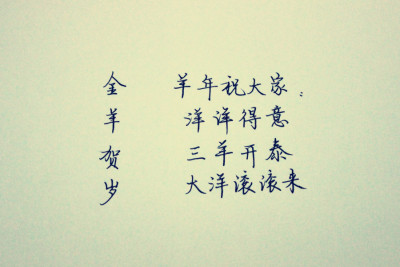 金 羊年祝大家：
羊 洋洋得意
贺 三羊开泰
岁 大洋滚滚来